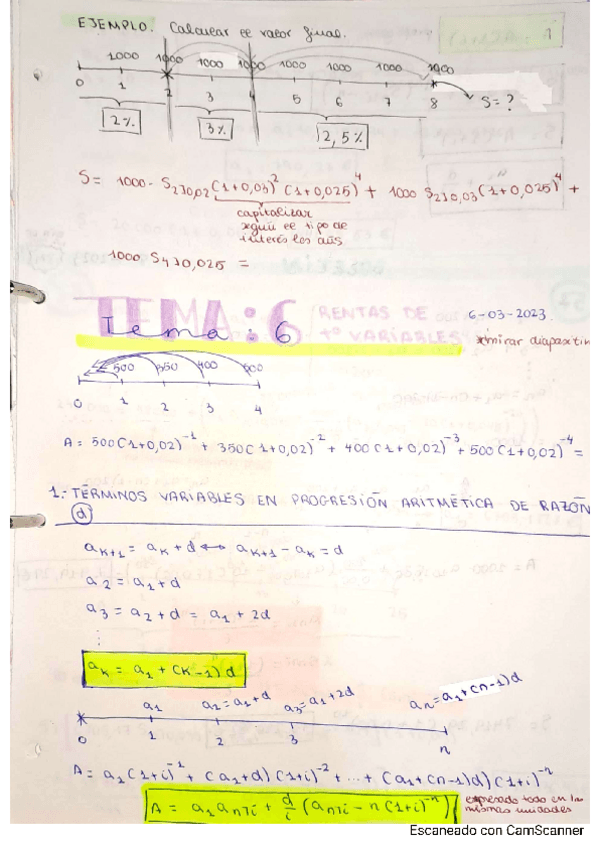 EJEMPLO. Calcular el valor final.
1000 1000 1000 1000 1000 1000 1000 1000
0 1 2 3 4 5 6 7 8 S=?
2% 3% 2,5%
S = 1000 · S2⅂0,02 (1+0,03)² (1+0,025)⁴ + 1000 S2⅂0,03 (1+0,025)⁴ +
capitalizar
según el tipo de
interés los años
1000 S4⅂0,025 =
TEMA: 6 RENTAS DE 6-03-2023.
Tema: 6 tº VARIABLES
*mirar
500 350 400 500
0 1 2 3 4
A = 500(1+0,02)⁻¹ + 350(1+0,02)⁻² + 400(1+0,02)⁻³ + 500(1+0,02)⁻⁴ =
1.- TÉRMINOS VARIABLES EN PROGRESIÓN ARITMÉTICA DE RAZÓN
(d)
aK+1 = aK + d ↔ aK+1 - aK = d
a2 = a1 + d
a3 = a2 + d = a1 + 2d
⋮
aK = a1 + (K-1) d
a1 a2=a1+d a3=a1+2d an=a1+(n-1)d
0 1 2 3 n
A = a1(1+i)⁻¹ + (a1+d)(1+i)⁻² + ... + (a1+(n-1)d)(1+i)⁻ⁿ
A = a1 an⅂i + d/i (an⅂i - n(1+i)⁻ⁿ) expresado todo en las
mismas unidades
Escaneado con CamScanner